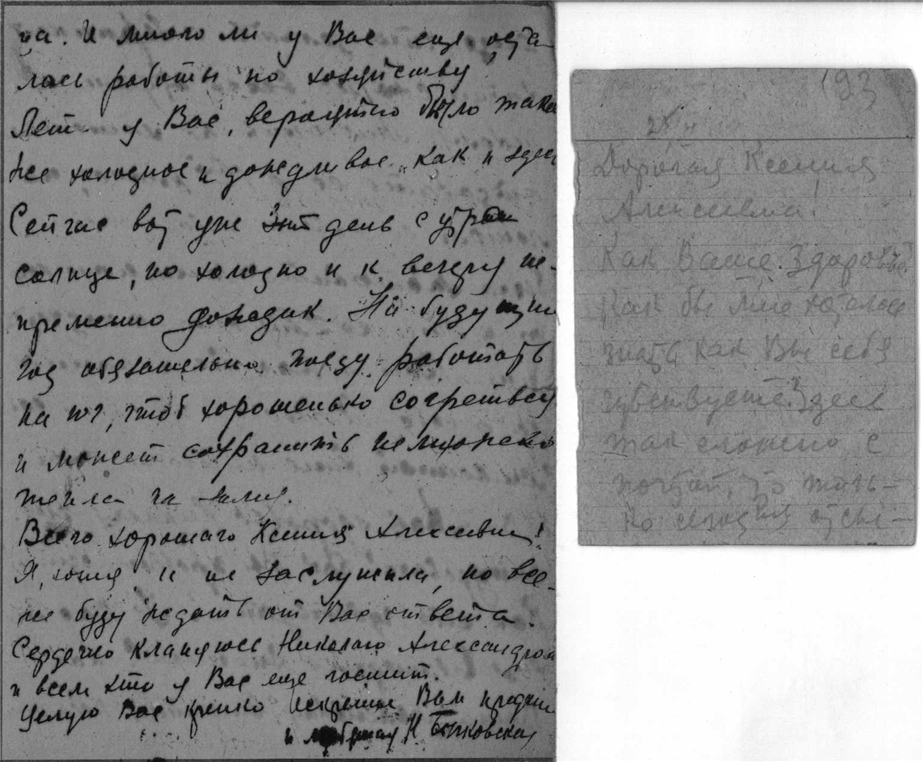 ра. И много ли у Вас еще оста
лась работы по хозяйству
Лето у Вас, вероятно было тако
же холодное и дождливое, как и здесь
Сейчас вот уже день с утра
солнце, но холодно и к вечеру не-
пременно дождик. На будущий
год обязательно поеду работать
на юг, чтоб хорошенько согреться
и может сохранить немножко
тепла на зиму.
Всего хорошаго Ксения Алексеевна!
Я, хотя и не заслужила, но все-
же буду ждать от Вас ответа.
Сердечно кланяюсь Николаю Александров
и всем кто у Вас еще гостит.
Целую Вас крепко Искренне Вам преданн
и любящая Н
193
Дорогая Ксения
Алексеевна!
Как Ваше здоровье?
Как бы мне хотелось
знать как Вы себя
чувствуете? Здесь
так сложно с
почтой, что толь-
ко сегодня отсы-